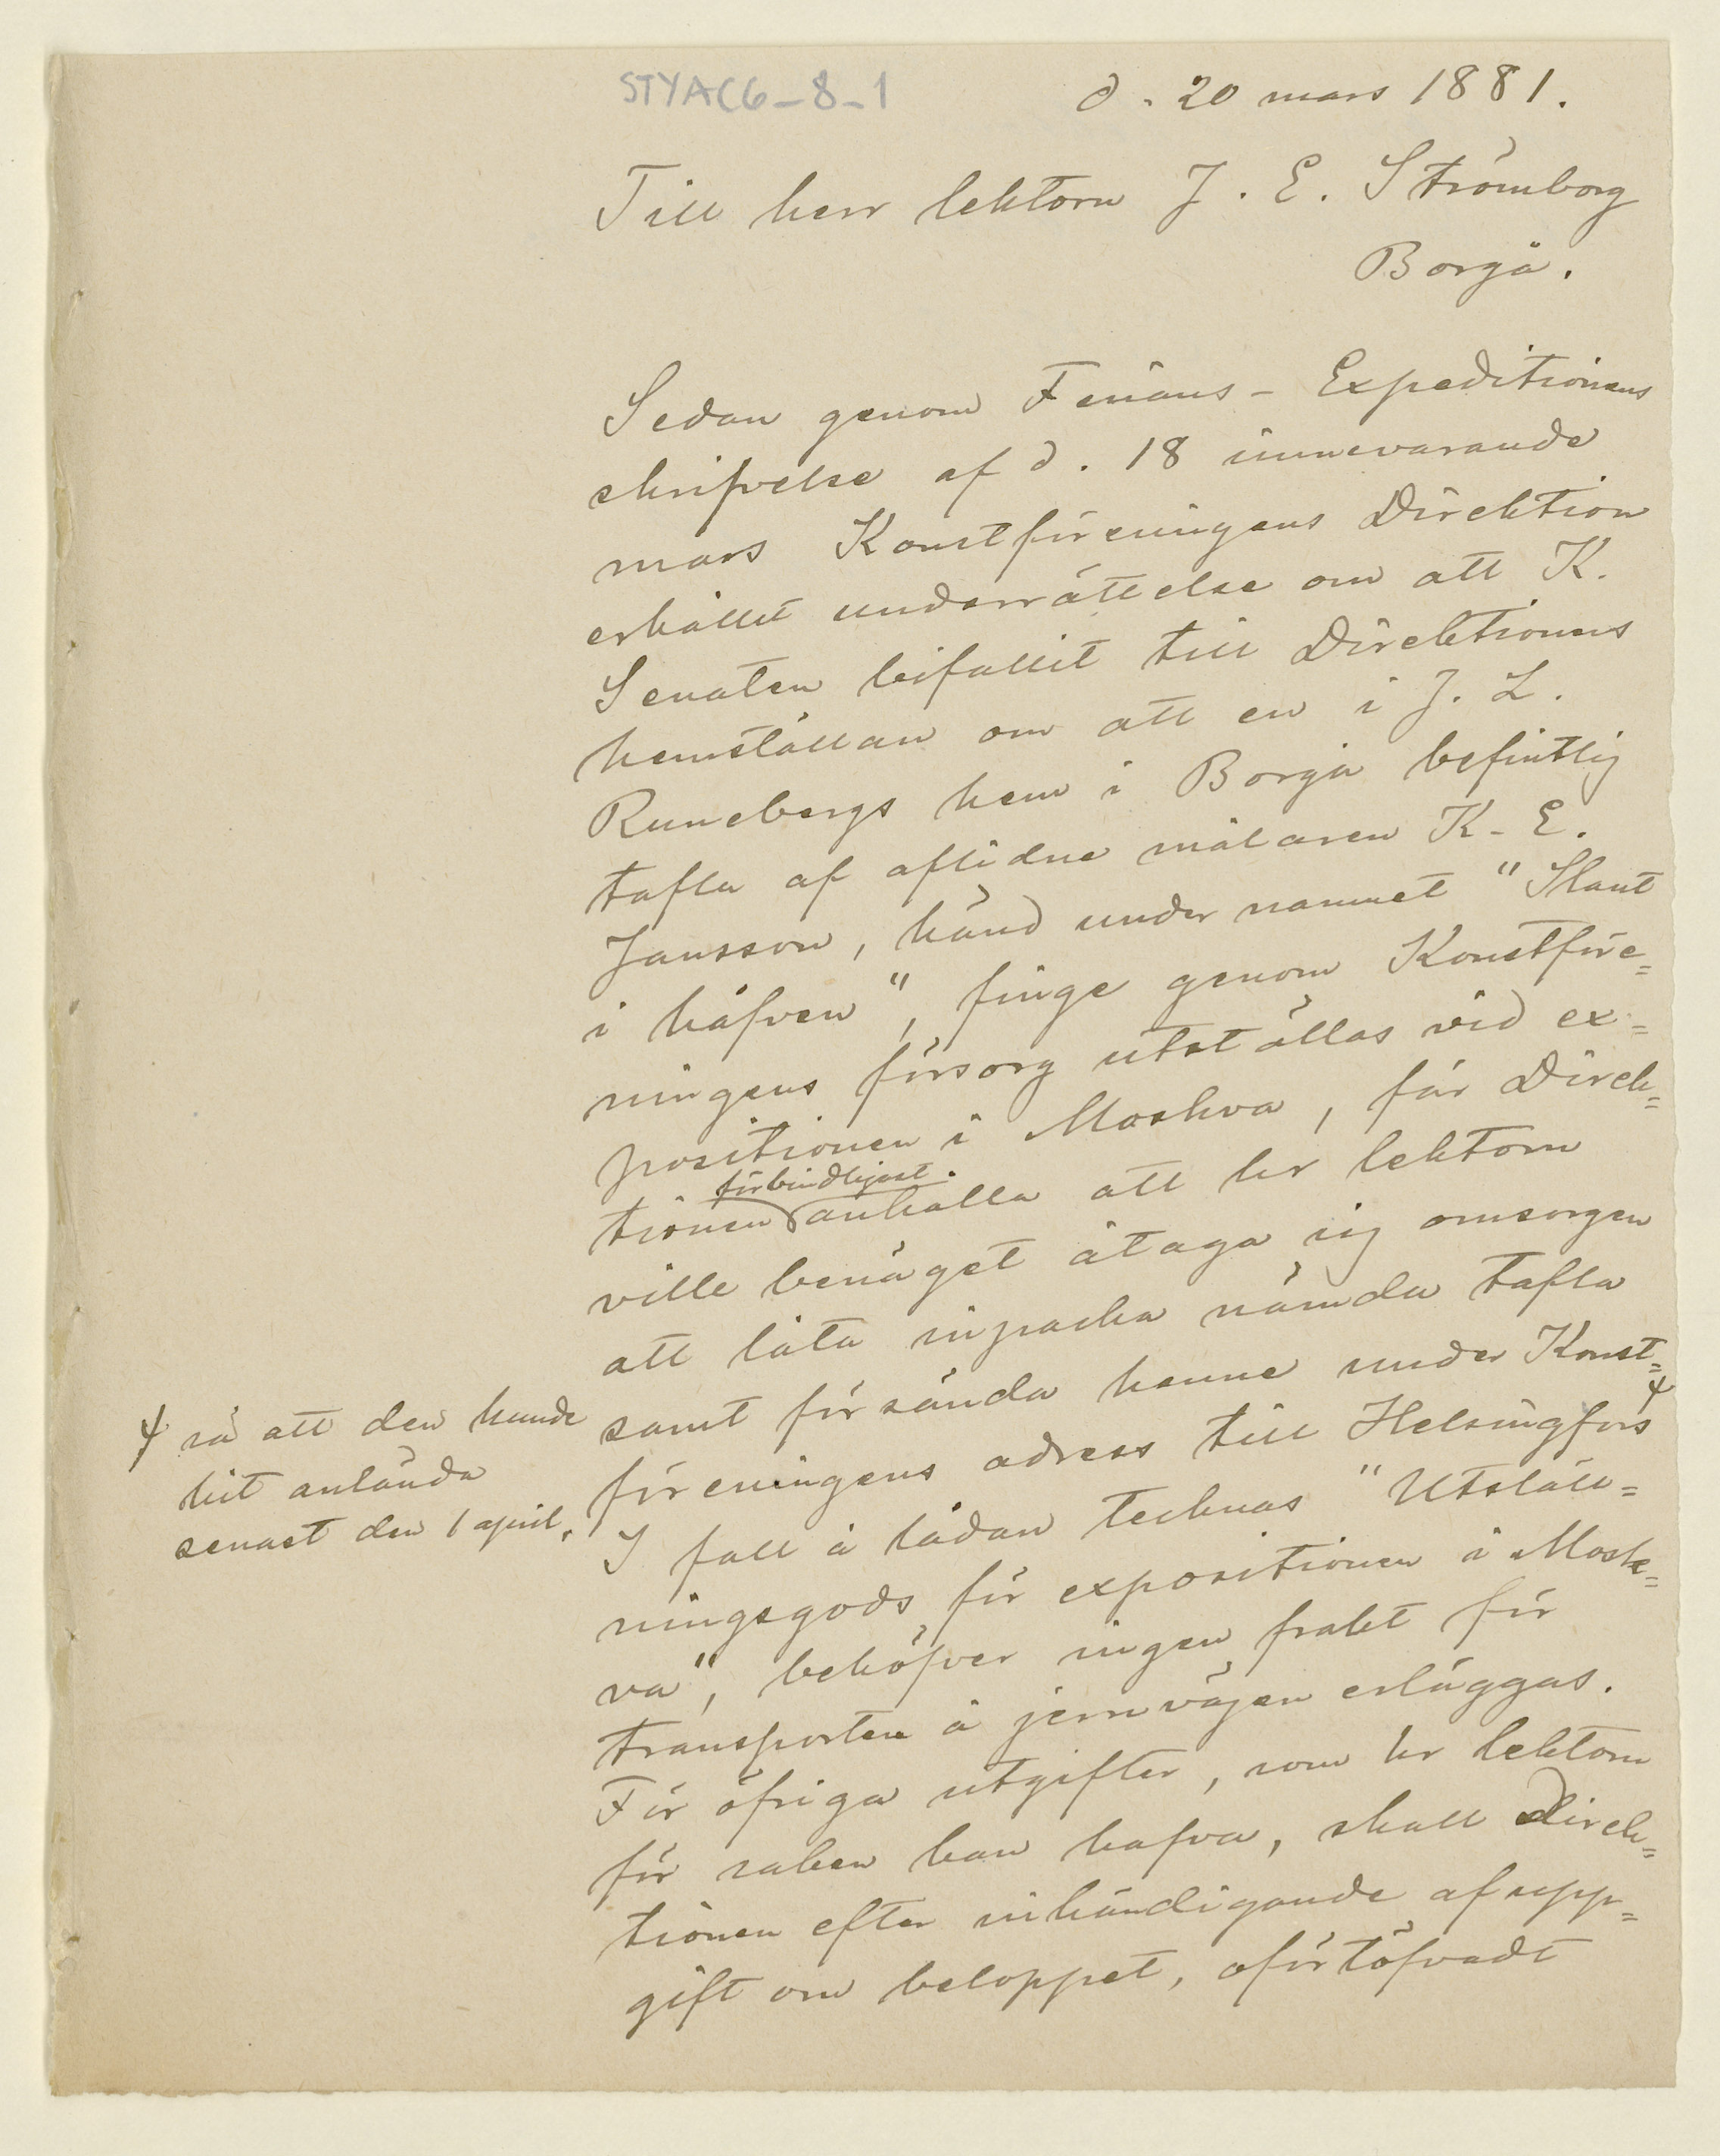 STYAC6-8-1
d. 20 mars 1881.
Till herr lektorn J. E. Strömborg
Borgå.
Sedan genom Finans-Expeditionens
skrifvelse af d. 18 innevarande
mars Konstföreningens Direktion
erhållit underrättelse om att K.
Senaten bifallit till Direktionens
hemställan om att en i J. L.
Runebergs hem i Borgå befintlig
tafla af aflidne målaren K. E.
Jansson, känd under namnet "Slant
i håfven", finge genom Konstföre=
ningens försorg utställas vid ex=
positionen i Moskva, får Direk=
förbindligast
tionen anhålla att hr lektorn
ville benäget åtaga sig omsorgen
att låta inpacka nämda tafla
samt försända henne under Konst=
föreningens adress till Helsingfors
så att den kunde
hit anlända
senast den 1 april.
I fall å lådan tecknas "Utställ=
ningsgods för expositionen i Mosk=
va", behöfver ingen frakt för
transporten å jernvägen erläggas.
För öfriga utgifter, som hr lektorn
för saken kan hafva, skall direk=
tionen efter inhändigande af upp=
gift om beloppet, oförtöfvadt